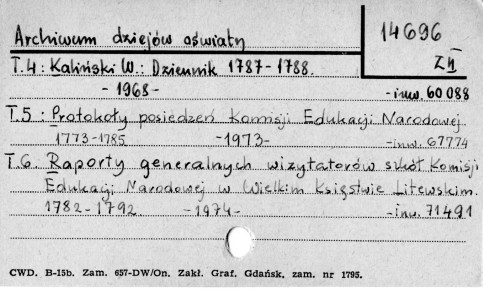 Archiwum dziejów oświaty
14696
Z II
T.4: Kaliński W.: Dziennik 1787-1788.
- 1968 - - inw. 60 088
T.5: Protokoły posiedzeń Komisji Edukacji Narodowej
1773-1785 - 1973 - - inw. 67774
T.6 Raporty generalnych wizytatorów szkół Komisji
Edukacji Narodowej w Wielkim Księstwie Litewskim.
1782-1792 - 1974 - - inw. 71491
CWD. B-15b. Zam. 657-DW/On. Zakł. Graf. Gdańsk, zam. nr 1795.